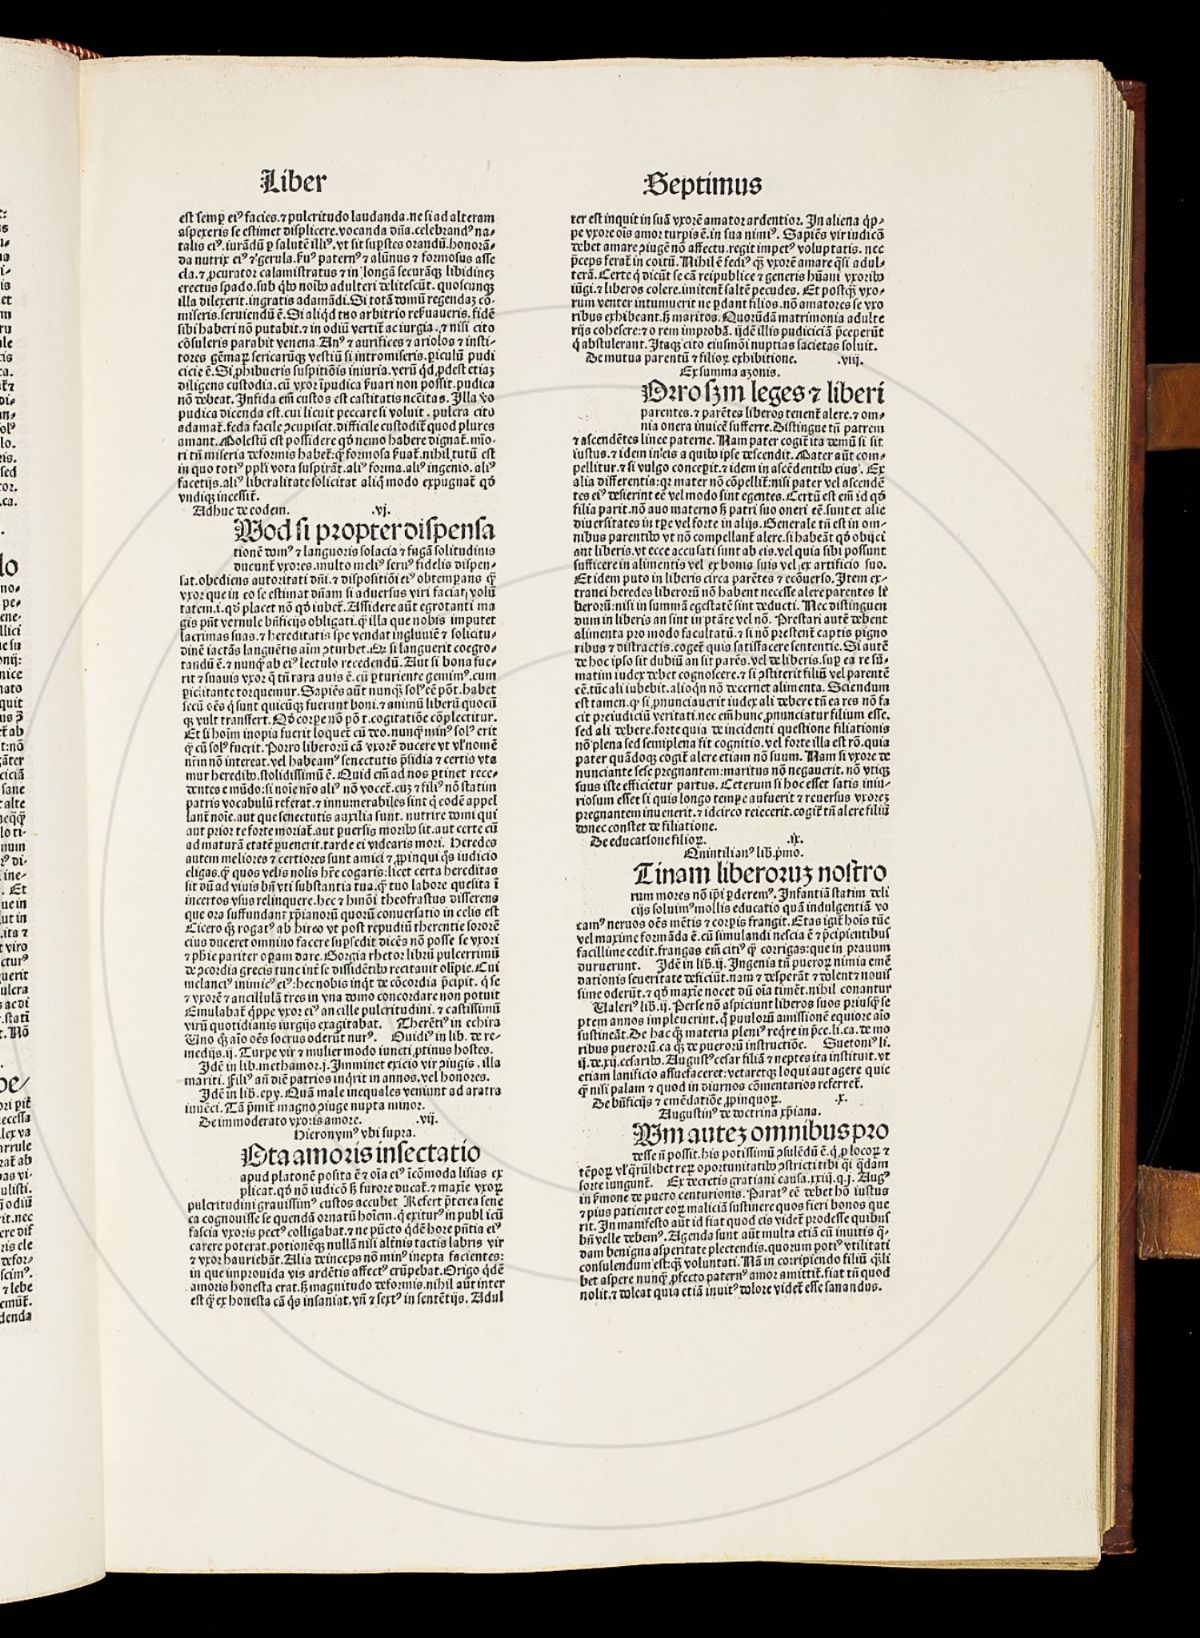 Liber
est semꝑ eiꝰ facies. ⁊ pulcritudo laudanda. ne si ad alteram
aspexeris se estimet displicere. vocanda dñа. celebrandꝰ na-
talis eiꝰ. iurãdũ ꝑ salutẽ illiꝰ. vt sit sup̱stes orandũ. honorã-
da nutrix eiꝰ ⁊ gerula. fuꝰ paternꝰ ⁊ alũnus ⁊ formosus asse
cla. ⁊ ꝓcurator calamistratus ⁊ in longã securãqꝫ libidinez
erectus spado. sub qͥbꝰ noĩbꝰ adulteri delitescũt. quoscunqꝫ
illa dilexerit. ingratis adamãdi. Si totã domũ regendaz cõ-
miseris. seruiendũ ẽ. Si aliqͥd tuo arbitrio reẞuaueris. fidẽ
sibi haberi nõ putabit. ⁊ in odiũ vertit̃ ac iurgia. ⁊ nisi cito
cõsuleris parabit venena. Anꝰ ⁊ aurifices ⁊ ariolos ⁊ insti-
tores gẽmaꝝ sericarũqꝫ vestiũ si intromiseris. ꝑiculũ pudi
cicie ẽ. Si ꝓhibueris suspitiõis iniuria. verũ qͥd ꝓdest etiaz
diligens custodia. cũ vxor ĩpudica ẞuari non possit. pudica
nõ debeat. Infida em̃ custos est castitatis ncc̃itas. Illa ꝟo
pudica dicenda est. cui licuit peccare si voluit. pulcra cito
adamat̃. feda facile ↄcupiscit. difficile custodit̃ quod plures
amant. Molestũ est possidere qͦd nemo habere dignat̃. mĩo-
ri tñ miseria deformis habet̃: qͣꝫ formosa ẞuat̃. nihil tutũ est
in quo totiꝰ pp̃li vota suspirãt. aliꝰ forma. aliꝰ ingenio. aliꝰ
facetijs. aliꝰ liberalitate solicitat aliqͦ modo expugnat̃ qͦd
vndiqꝫ incessit̃.
Adhuc de eodem. .vj.
Vod si propter dispensa
tionẽ domꝰ ⁊ languoris solacia ⁊ fugã solitudinis
ducunt̃ vxores. multo meliꝰ seruꝰ fidelis dispen-
sat. obediens autoritati dñi. ⁊ dispositiõi eiꝰ obtemꝑans qͣꝫ
vxor que in eo se estimat dñam si aduersus viri faciat volũ
tatem. i. qͦd placet nõ qͦd iubet̃. Assidere aũt egrotanti ma
gis pñt vernule bñficijs obligati. qͣꝫ illa que nobis imputet
lacrimas suas. ⁊ hereditatis spe vendat ingluuiẽ ⁊ solicitu-
dinẽ iactãs languẽtis aĩm ↄturbet. Qͦ si languerit coegro-
tandũ ẽ. ⁊ nunqͣꝫ ab eiꝰ lectulo recedendũ. Aut si bona fue-
rit ⁊ suauis vxor q̃ tñ rara auis ẽ. cũ ꝑturiente gemimꝰ. cum
ꝑiclitante torquemur. Sapiẽs aũt nunqͣꝫ solꝰ ẽe põt. habet
secũ oẽs q̃ sunt quicũqꝫ fuerunt boni. ⁊ animũ liberũ quocũ
qꝫ vult transfert. Qͦd corꝑe nõ põt. cogitatiõe cõplectitur.
Et si hoĩm inopia fuerit loquet̃ cũ deo. nunqͣꝫ minꝰ solꝰ erit
qͣꝫ cũ solꝰ fuerit. Porro liberorũ cã vxorẽ ducere vt vl̓ nomẽ
nr̃m nõ intereat. vel habeamꝰ senectutis pͥsidia ⁊ certis vta
mur heredibꝰ. stolidissimũ ẽ. Quid em̃ ad nos ꝑtinet rece-
dentes e mũdo: si noĩe nr̃o aliꝰ nõ vocet̃. cuz ⁊ filiꝰ nõ statim
patris vocabulũ referat. ⁊ innumerabiles sint q̃ eodẽ appel
lant̃ noĩe. aut que senectutis auxilia sunt. nutrire domi qui
aut prior te forte moriat̃. aut ꝑuersis moribꝰ sit. aut certe cũ
ad maturã etatẽ ꝑuenerit. tarde ei videaris mori. Heredes
autem meliores ⁊ certiores sunt amici ⁊ ꝓpinqui qͦs iudicio
eligas. qͣꝫ quos velis nolis hr̃e cogaris: licet certa hereditas
sit dũ ad viuis bñ vti substantia tua. qͣꝫ tuo labore quesita ĩ
incertos vsus relinquere. hec ⁊ hmõi theofrastus disserens
que ora suffundant xp̃ianorũ quorũ conuersatio in celis est
Cicero qͣꝫ rogatꝰ ab hirco vt post repudiũ therentie sororẽ
eius duceret omnino facere suꝑsedit dicẽs nõ posse se vxori
⁊ ph̃ie pariter oꝑam dare. Gorgia rhetor librũ pulcerrimũ
de ↄcordia grecis tunc int̃ se dissidẽtibꝰ recitauit olĩpie. Cui
melanciꝰ inimicꝰ eiꝰ: hec nobis inqͥt de cõcordia pͥcipit. qͥ se
⁊ vxorẽ ⁊ ancillulã tres in vna domo concordare non potuit
Emulabat̃ qͥppe vxor eiꝰ ancille pulcritudini. ⁊ castissimũ
virũ quotidianis iurgijs exagitabat. Therẽtiꝰ in echira
Uno qͣꝫ aĩo oẽs socrus oderũt nurꝰ. Ouidiꝰ in lib. de re-
medijs. ij. Turpe vir ⁊ mulier modo iuncti ꝓtinus hostes.
Idẽ in lib. methamor. j. Imminet exicio vir ↄiugis. illa
mariti. Filiꝰ añ diẽ patrios inqͥrit in annos. vel honores.
Idẽ in lib. ep̃y. Quã male inequales veniunt ad aratra
iuuẽci. Tã pͥmit̃ magno ↄiuge nupta minor.
De immoderato vxoris amore. .vij.
Hieronymꝰ vbi supra.
Ota amoris insectatio
apud platonẽ posita ẽ ⁊ oĩa eiꝰ ĩcõmoda lisias ex
plicat. qͦd nõ iudicõ ẞ furore ducat̃. ⁊ maxĩe vxoꝝ
pulcritudini grauissimꝰ custos accubet Refert pͥterea sene
ca cognouisse se quendã ornatũ hoĩem. qͥ exiturꝰ in publicũ
fascia vxoris pectꝰ colligabat. ⁊ ne pũcto qͥdẽ hore pñtia eiꝰ
carere poterat. potionẽqꝫ nullã nisi alt̓nis tactis labris vir
⁊ vxor hauriebãt. Alia deinceps nõ minꝰ inepta facientes:
in que improuida vis ardẽtis affectꝰ erũpebat. Origo qͥdẽ
amoris honesta erat. ẞ magnitudo deformis. nihil aũt inter
est qͣꝫ ex honesta cã qͥs insaniat. vñ ⁊ sextꝰ in sentẽtijs. Adul
Septimus
ter est inquit in suã vxorẽ amator ardentior. In aliena qͥp-
pe vxore oĩs amor turpis ẽ. in sua nimiꝰ. Sapiẽs vir iudicã
debet amare ↄiugẽ nõ affectu. regit impetꝰ voluptatis. nec
pͥceps ferat̃ in coitũ. Nihil ẽ fediꝰ qͣꝫ vxorẽ amare qͣsi adul-
terã. Certe qͥ dicũt se cã reipublice ⁊ generis hũani vxoribꝰ
iũgi. ⁊ liberos colere. imitent̃ saltẽ pecudes. Et postqͣꝫ vxo-
rum venter intumuerit ne ꝑdant filios. nõ amatores se vxo
ribus exhibeant. ẞ maritos. Quorũdã matrimonia adulte
rijs cohesere: ⁊ o rem improbã. ijdẽ illis pudiciciã pͥceperũt
qͥ abstulerant. Itaqꝫ cito eiusmõi nuptias sacietas soluit.
De mutua parentũ ⁊ filioꝝ exhibitione. .viij.
Ex summa azonis.
Orro sꝫm leges ⁊ liberi
parentes. ⁊ parẽtes liberos tenent̃ alere. ⁊ om-
nia onera inuicẽ sufferre. Distingue tñ patrem
⁊ ascendẽtes linee paterne. Nam pater cogit̃ ita demũ si sit
iustus. ⁊ idem in eis a quibꝰ ipse descendit. Mater aũt com-
pellitur. ⁊ si vulgo concepit. ⁊ idem in ascẽdentibꝰ eius. Ex
alia differentia: qꝛ mater nõ cõpellit̃: nisi pater vel ascendẽ
tes eiꝰ desierint eẽ vel modo sint egentes. Certũ est em̃ id qͦd
filia parit. nõ auo materno ẞ patri suo oneri eẽ. sunt et alie
diuersitates in tp̃e vel forte in alijs. Generale tñ est in om-
nibus parentibꝰ vt nõ compellant̃ alere. si habeãt qͦd obijci
ant liberis. vt ecce accusati sunt ab eis. vel quia sibi possunt
sufficere in alimentis vel ex bonis suis vel ex artificio suo.
Et idem puto in liberis circa parẽtes ⁊ ecõuerso. Item ex-
tranei heredes liberorũ nõ habent necesse alere parentes li
berorũ: nisi in summã egestatẽ sint deducti. Nec distinguen
dum in liberis an sint in ptãte vel nõ. Prestari autẽ debent
alimenta pro modo facultatũ. ⁊ si nõ prestent̃ captis pigno
ribus ⁊ distractis. coget̃ quis satisfacere sententie. Si autẽ
de hoc ipso sit dubiũ an sit parẽs. vel de liberis. suꝑ ea re sũ-
matim iudex debet cognoscere. ⁊ si ↄstiterit filiũ vel parentẽ
eẽ. tũc ali iubebit. alioqͥn nõ decernet alimenta. Sciendum
est tamen. qꝫ si ꝓnunciauerit iudex ali debere tñ ea res nõ fa
cit preiudiciũ veritati. nec em̃ hunc ꝓnunciatur filium esse.
sed ali debere. forte quia de incidenti questione filiationis
nõ plena sed semiplena fit cognitio. vel forte illa est rõ. quia
pater quãdoqꝫ cogit̃ alere etiam nõ suum. Nam si vxore de
nunciante sese pregnantem: maritus nõ negauerit. nõ vtiqꝫ
suus iste efficietur partus. Ceterum si hoc esset satis iniu-
riosum esset si quis longo tempe aufuerit ⁊ reuersus vxorez
pregnantem inuenerit. ⁊ idcirco reiecerit. cogit̃ tñ alere filiũ
donec constet de filiatione.
De educatione filioꝝ. .ix.
Quintilianꝰ lib. pͥmo.
Tinam liberoruꝫ nostro
rum mores nõ ip̃i ꝑderemꝰ. Infantiã statim deli
cijs soluimꝰ mollis educatio quã indulgentiã vo
camꝰ neruos oẽs mẽtis ⁊ corꝑis frangit. Etas igit̃ hoĩs tũc
vel maxime formãda ẽ. cũ simulandi nescia ẽ ⁊ pͥcipientibus
facillime cedit. frangas em̃ citiꝰ qͣꝫ corrigas: que in prauum
duruerunt. Idẽ in lib. ij. Ingenia tñ pueroꝝ nimia emẽ
dationis seueritate deficiũt. nam ⁊ desperãt ⁊ dolent ⁊ nouis
sime oderũt. ⁊ qͦd maxĩe nocet dũ oĩa timẽt. nihil conantur
Ualeriꝰ lib. ij. Perse nõ aspiciunt liberos suos priusqͣꝫ se
ptem annos impleuerint. qͣꝫ paulorũ amissionẽ equiore aĩo
sustineãt. De hac qͣꝫ materia pleniꝰ reqͥre in pͥce. li. ca. de mo
ribus puerorũ. ca qͣꝫ de puerorũ instructiõe. Suetoniꝰ li.
ij. de. xij. cesaribꝰ. Augustꝰ cesar filiã ⁊ neptes ita instituit. vt
etiam lanificio assuefaceret: vetaretqꝫ loqui aut agere quic
qͣꝫ nisi palam ⁊ quod in diurnos cõmentarios referret̃.
De bñficijs ⁊ emẽdatiõe ꝓpinquoꝝ. .x.
Augustinꝰ de doctrina xp̃iana.
Vm autez omnibus pro
desse nõ possit. his potissimũ ↄsulẽdũ ẽ. qͥ ꝓ locoꝝ ⁊
tẽpoꝝ vl̓ qͣrũlibet reꝝ oportunitatibꝰ ↄstricti tibi qͣsi qͣdam
sorte iungunt̃. Ex decretis gratiani causa. xxiij. q. j. Augꝰ
in ẞmone de puero centurionis. Paratꝰ eẽ debet hõ iustus
⁊ pius patienter eoꝝ maliciã sustinere quos fieri bonos que
rit. In manifesto aũt id fiat quod eis videt̃ prodesse quibus
bñ velle debemꝰ. Agenda sunt aũt multa etiã cũ inuitis qͣ-
dam benigna asperitate plectendis. quorum potiꝰ vtilitati
consulendum est: qͣꝫ voluntati. Nã in corripiendo filiũ qͣli
bet aspere nunqͣꝫ ꝓfecto paternꝰ amor amittit̃. fiat tñ quod
nolit. ⁊ doleat quia etiã inuitꝰ dolore videt̃ esse sanandus.